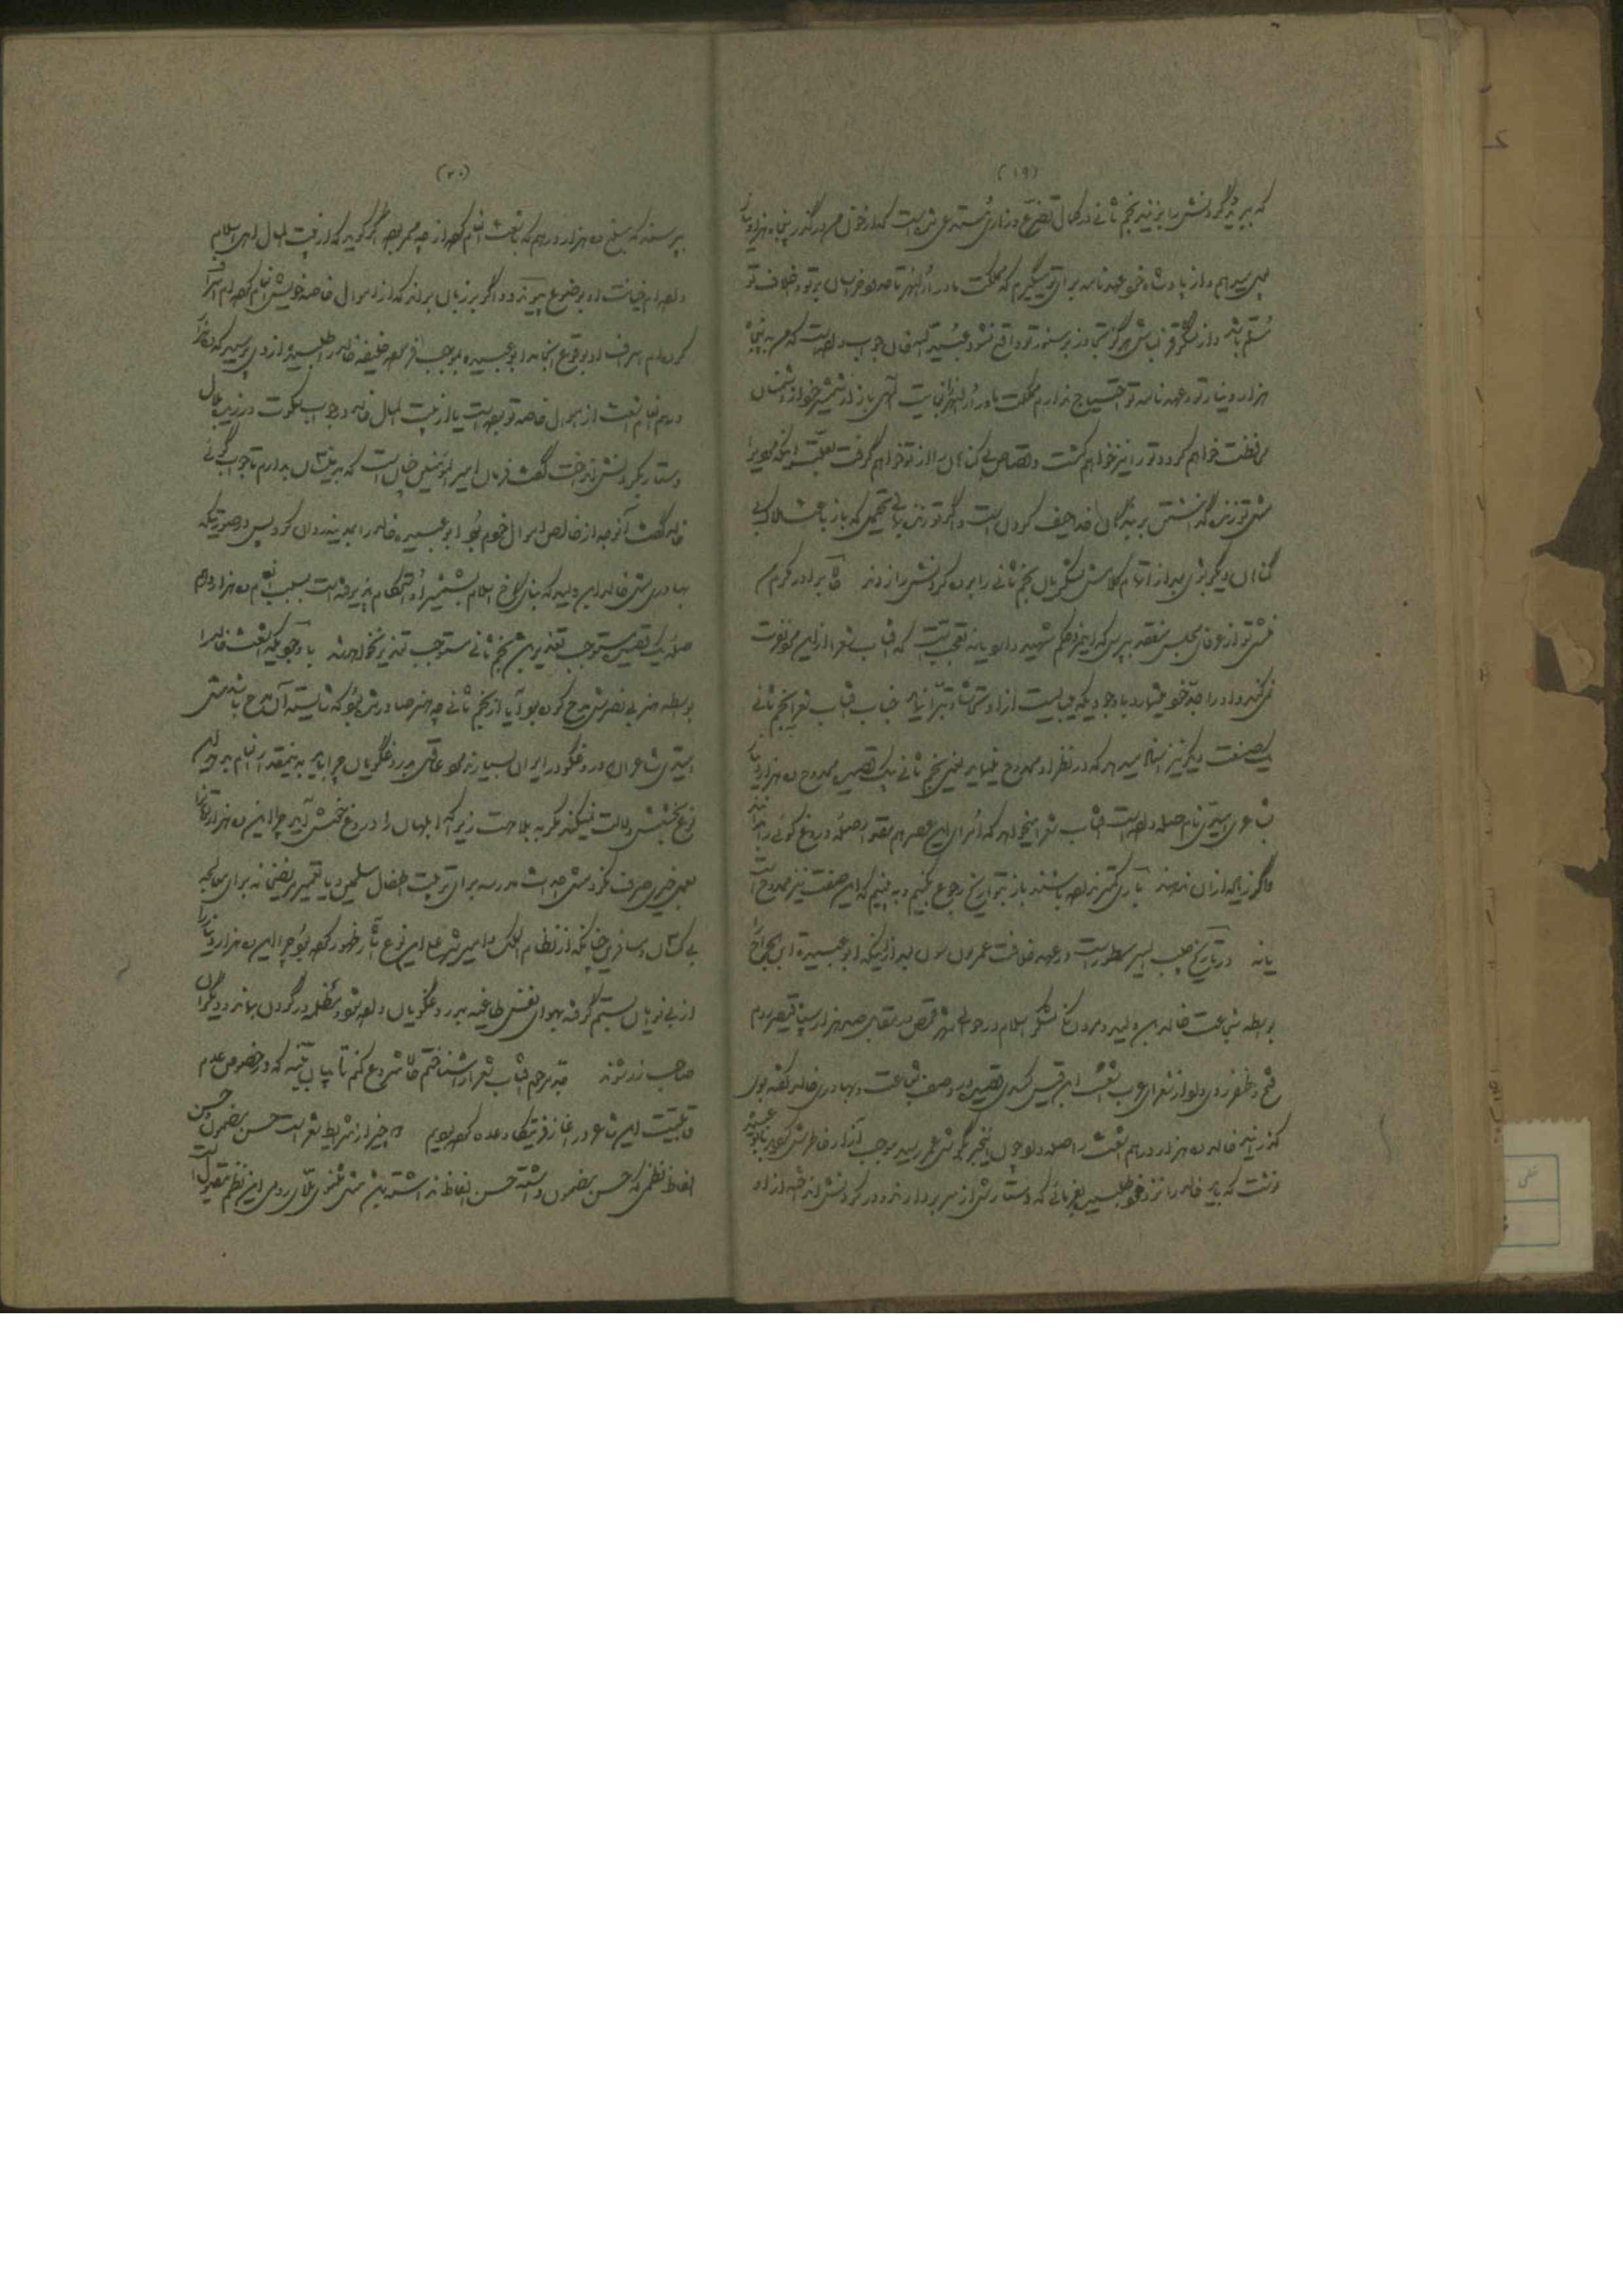 (۱۹)
که ببرید گردنش را بزنید نجم ثانی در کمال تضرع و زاری مستدعی شده است که از خون من درگذر پنجاه هزار دینار
می‌دهم و از پادشاه خود عهدنامه برای تو میگیرم که مملکت ماوراءالنهر تا حدود خراسان بر تو و اخلاف تو
مسلم باشد و از لشکر قزلباش هرگز تجاوز بر سنور تو واقع نشود عبیدالله خان جواب داده است که من به پنجاه
هزار دینار تو و عهدنامه تو احتیاج ندارم مملکت ماوراءالنهر را بعنایت الهی با زور شمشیر خود از دشمنان
محافظت خواهم کرد و تو را نیز خواهم کشت و قصاص بی‌گناهان را از تو خواهم گرفت بعلت اینکه موذی را
مثل تو زنده گذاشتن بر بندگان خدا حیف کردن است و اگر تو زنده بمانی محتمل که باز باعث هلاک بی
گناهان دیگر بشوی بعد از اتمام کلامش لشکریان نجم ثانی را برده گردنش را زدند حالا برادر مکرم من
منشی تو از عرفای مجلس منعقده بپرس که ایشان هم شنیده‌اند یا نه تعجب نیست که آفتاب شعرا از این موذی نفرت
نمیکند و او را جد خود میشمارد با وجودیکه میبایست از او تحاشی و تبرا نماید جناب آفتاب شعرا بنجم ثانی
یک صفت دیگر نیز اسناد میدهد که در نظر او ممدوح مینماید یعنی نجم ثانی بیک قصیده ممدوح ده هزار دینار
بشاعری امیدی نام صله داده است آفتاب شعرا میخواهد که امرای این عصر هم بقدر او صله دروغ گوئی را بدهند
و اگر زیاده از آن ندهند باری کمتر نداده باشند باز بتواریخ رجوع بکنیم و ببینیم که این صفت نیز ممدوح است
یا نه در تاریخ حبیب السیر مسطور است در عهد خلافت عمر بن سود بعد از اینکه ابوعبیده ابن جراح
بواسطه شجاعت خالد بن ولید و مردانگی لشکر اسلام در حوالی شهر حمص در مقابل صد هزار سپاه قیصر روم
فتح و ظفر روی داد از شعرای عرب اشعث ابن قیس کندی قصیده در وصف شجاعت و بهادری خالد گفته بود
گذرانید خالد ده هزار درهم باشعث صله داد چون این خبر بگوش عمر رسید موجب آزار خاطرش گردید بابوعبیده
نوشت که باید خالد را نزد خود طلبیده بفرمائی که دستارش از سر بردارند و در گردنش انداخته از او
(۲۰)
بپرسند که مبلغ ده هزار درهم که باشعث انعام کرده از چه ممر بوده اگر گوید که از بیت المال اهل اسلام
داده‌ام خیانت او بوضوح پیوندد و اگر بر زبان براند که از اموال خاصه خویش انعام کرده‌ام اسراف
کرده‌ام اسراف او بوقوع انجامد ابوعبیده بموجب فرموده خلیفه خالد را طلبیده از وی پرسید که ده هزار
درهم انعام اشعث از اموال خاصه تو بوده است یا از بیت المال خالد در جواب سکوت ورزید بلال
دستار بگردنش انداخت گفت فرمان امیر المؤمنین چنان است که بدینسان بدارم تا جواب گوئی
خالد گفت آنوجه از خالص اموال خودم بود ابوعبیده خالد را بمدینه روان کرد پس در صورتیکه
بهادری مثل خالد ابن ولید که بنای کاخ اسلام بشمشیر او استحکام پذیرفته است بسبب انعام ده هزار درهم
صله یک قصیده مستوجب تعذیر شود نجم ثانی مستوجب تعذیر نخواهد شد با وجودیکه اشعث خالد را
بواسطه هنر بی‌نظیرش مدح کرده بود آیا از نجم ثانی چه هنر صادر شده بود که شایسته آن مدح باشد مثل
امیدی شاعران دروغگو در ایران بسیارند مرد عاقل بدروغگویان چرا باید به اینقدر انعام بدهد این
نوع بخشش دلالت نمیکند مگر به بلاهت زیرا که ابلهان را دروغ خوش آید چرا این ده هزار دینار را
بعمل خیری صرف نکرد مثل احداث مدرسه برای تربیت اطفال مسلمین و یا تعمیر مریضخانه برای معالجه
بی‌کسان و مسافرین چنانکه از نظام الملک و امیر علیشیر این نوع آثار ظهور کرده بود چرا این ده هزار دینار را
از بینوایان بستم گرفته بهوای نفس طاغیه بدروغگویان داده خود مظلمه در گردن بماند و دیگران
صاحب زر شوند قدر مرحم آفتاب شعرا را شناختم حالا شروع کنم تا بپایان آنچه که در خصوص عدم
قابلیت این شاعر در آغاز قرتیکا وعده کرده بودیم دو چیز از شرایط شعر است حسن مضمون و حسن
الفاظ نظمی که حسن مضمون داشته حسن الفاظ نداشته باشد مثل مثنوی ملای رومی این نظم مقبول است